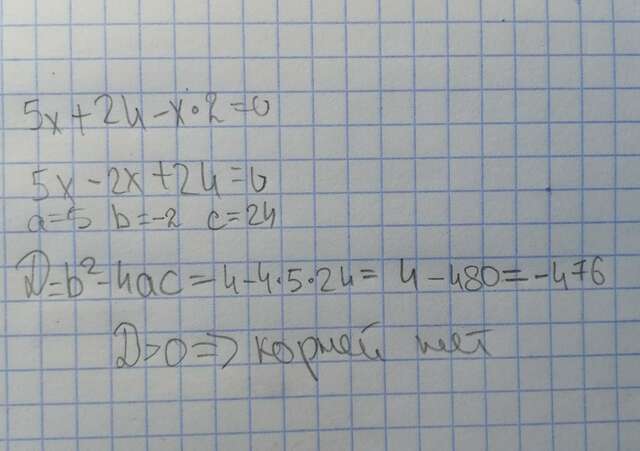 5x+24-x·2=0
5x-2x+24=0
a=5 b=-2 c=24
D=b²-4ac=4-4·5·24= 4-480=-476
D>0=> корней нет